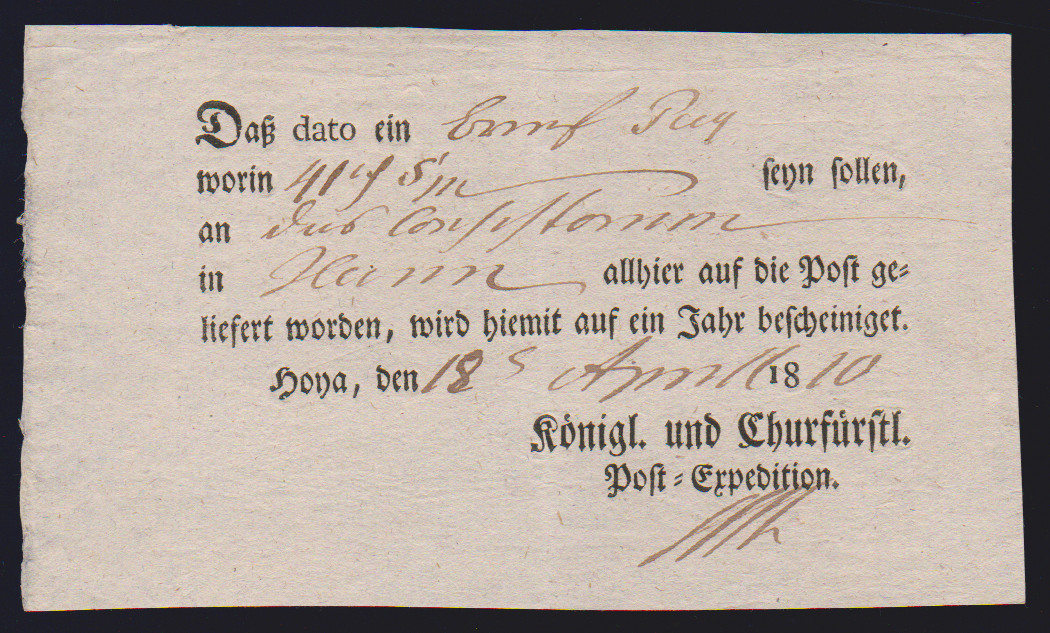 Daß dato ein Brief
worin seyn sollen,
an das Consistorium
in Hann allhier auf die Post ge-
liefert worden, wird hiemit auf ein Jahr bescheiniget.
Hoya, den 18 April 1810
Königl. und Churfürstl.
Post-Expedition.